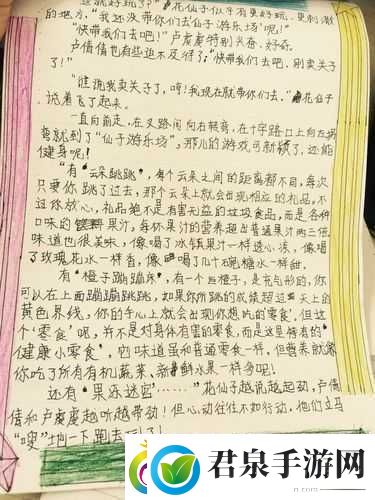 这就好玩了?"花仙子似乎有更好玩、更刺激
的地方,"我还没带你们去仙子游乐场呢!"
"快带我们去吧!"卢虔虔特别兴奋、好奇。
卢倩倩也有些迫不及待了:"快带我们去吧,别卖关子
了!"
"谁说我卖关子了,哼!我现在就带你们去。"花仙子
说着飞了起来。
一直向前走,在叉路间向右转弯,在十字路口上向左拐
弯就到了"仙子游乐场",那儿的游戏可新颖了,还能
健身呢!
"有'云朵跳跳',每个云朵之间的距离都不同,每次
只要你跳了过去,那个云朵上就会出现相应的礼品,不
过你放心,礼品绝不是有害无益的垃圾食品,而是各种
口味的果汁,每杯果汁的营养超出普通果汁两三倍,
味道也很美味,像喝了冰镇果汁一样透心凉,像喝
了玫瑰花水一样香,像喝了几十石跪糖水一样甜。
有"橙子蹦蹦床",有一个巨橙子,是充气形的,你
可以在上面蹦蹦跳跳,如果你所跳的成绩超过天上的
黄色界线,你的手心上就会出现你想吃的零食,但这
个'零食'呢,并不是对身体有害的零食,而是这里特有的
'健康小零食',它味道虽和普通零食一样,但营养就像
你吃了所有有机蔬菜、新鲜水果一样多呢!
还有"果冻迷宫……"花仙子越说越起劲,卢倩
倩和卢虔虔越听越带劲!但心动往往不如行动,他们立马
"嗖"地一下跑去玩了!
君泉手游网